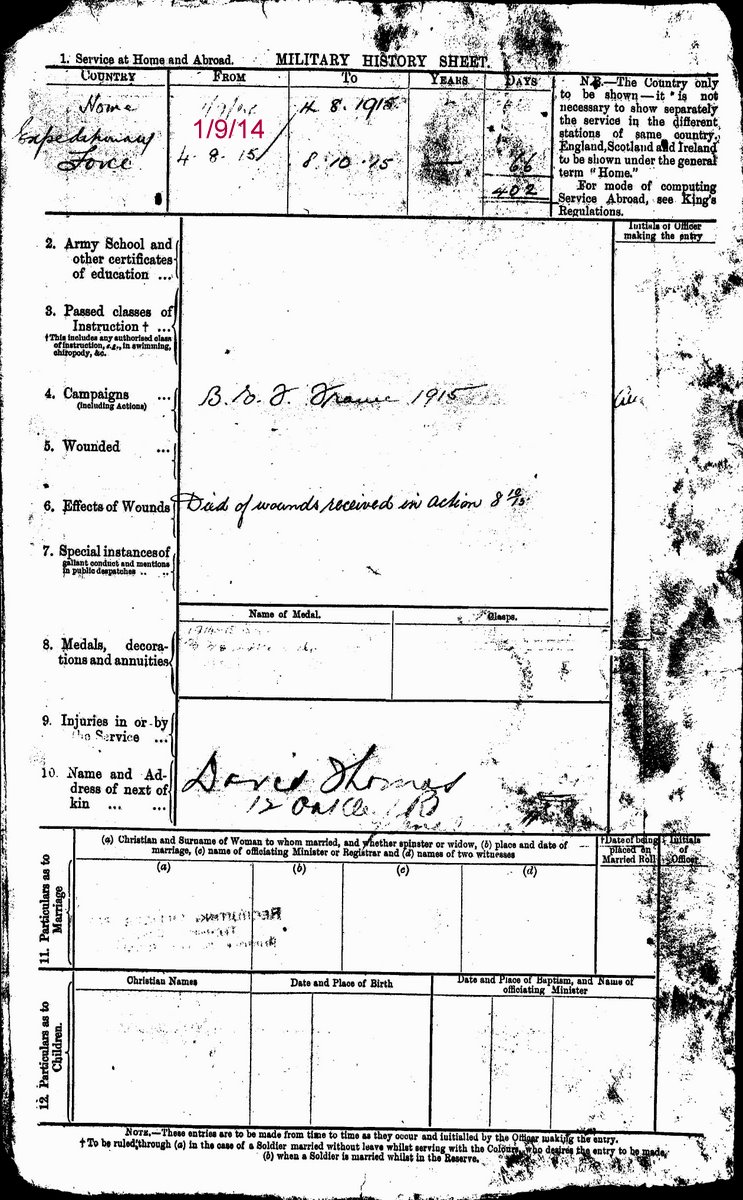 1. Service at Home and Abroad. MILITARY HISTORY SHEET.
COUNTRY FROM TO YEARS DAYS
Home 4. 8. 1915
1/9/14
Expeditionary
Force 4. 8. 15 8. 10. 15 66
402
N.B.—The Country only
to be shown—it is not
necessary to show separately
the service in the different
stations of same country,
England, Scotland and Ireland
to be shown under the general
term "Home."
For mode of computing
Service Abroad, see King's
Regulations.
Initials of Officer
making the entry
2. Army School and
other certificates
of education ...
3. Passed classes of
Instruction † ...
†This includes any authorised class
of instruction, e.g., in swimming,
chiropody, &c.
4. Campaigns ... B. E. F. France 1915
(including Actions)
5. Wounded ...
6. Effects of Wounds Died of wounds received in action 8 10/15
7. Special instances of
gallant conduct and mentions
in public despatches .. ..
Name of Medal. Clasps.
8. Medals, decora-
tions and annuities
9. Injuries in or by
the Service ...
10. Name and Ad- David Thomas
dress of next of 12
kin ... ...
11. Particulars as to
Marriage
(a) Christian and Surname of Woman to whom married, and whether spinster or widow, (b) place and date of
marriage, (c) name of officiating Minister or Registrar and (d) names of two witnesses
†Date of being
placed on
Married Roll
Initials
of
Officer
(a) (b) (c) (d)
12. Particulars as to
Children.
Christian Names Date and Place of Birth Date and Place of Baptism, and Name of
officiating Minister
NOTE.—These entries are to be made from time to time as they occur and initialled by the Officer making the entry.
†To be ruled through (a) in the case of a Soldier married without leave whilst serving with the Colours, who desires the entry to be made,
(b) when a Soldier is married whilst in the Reserve.